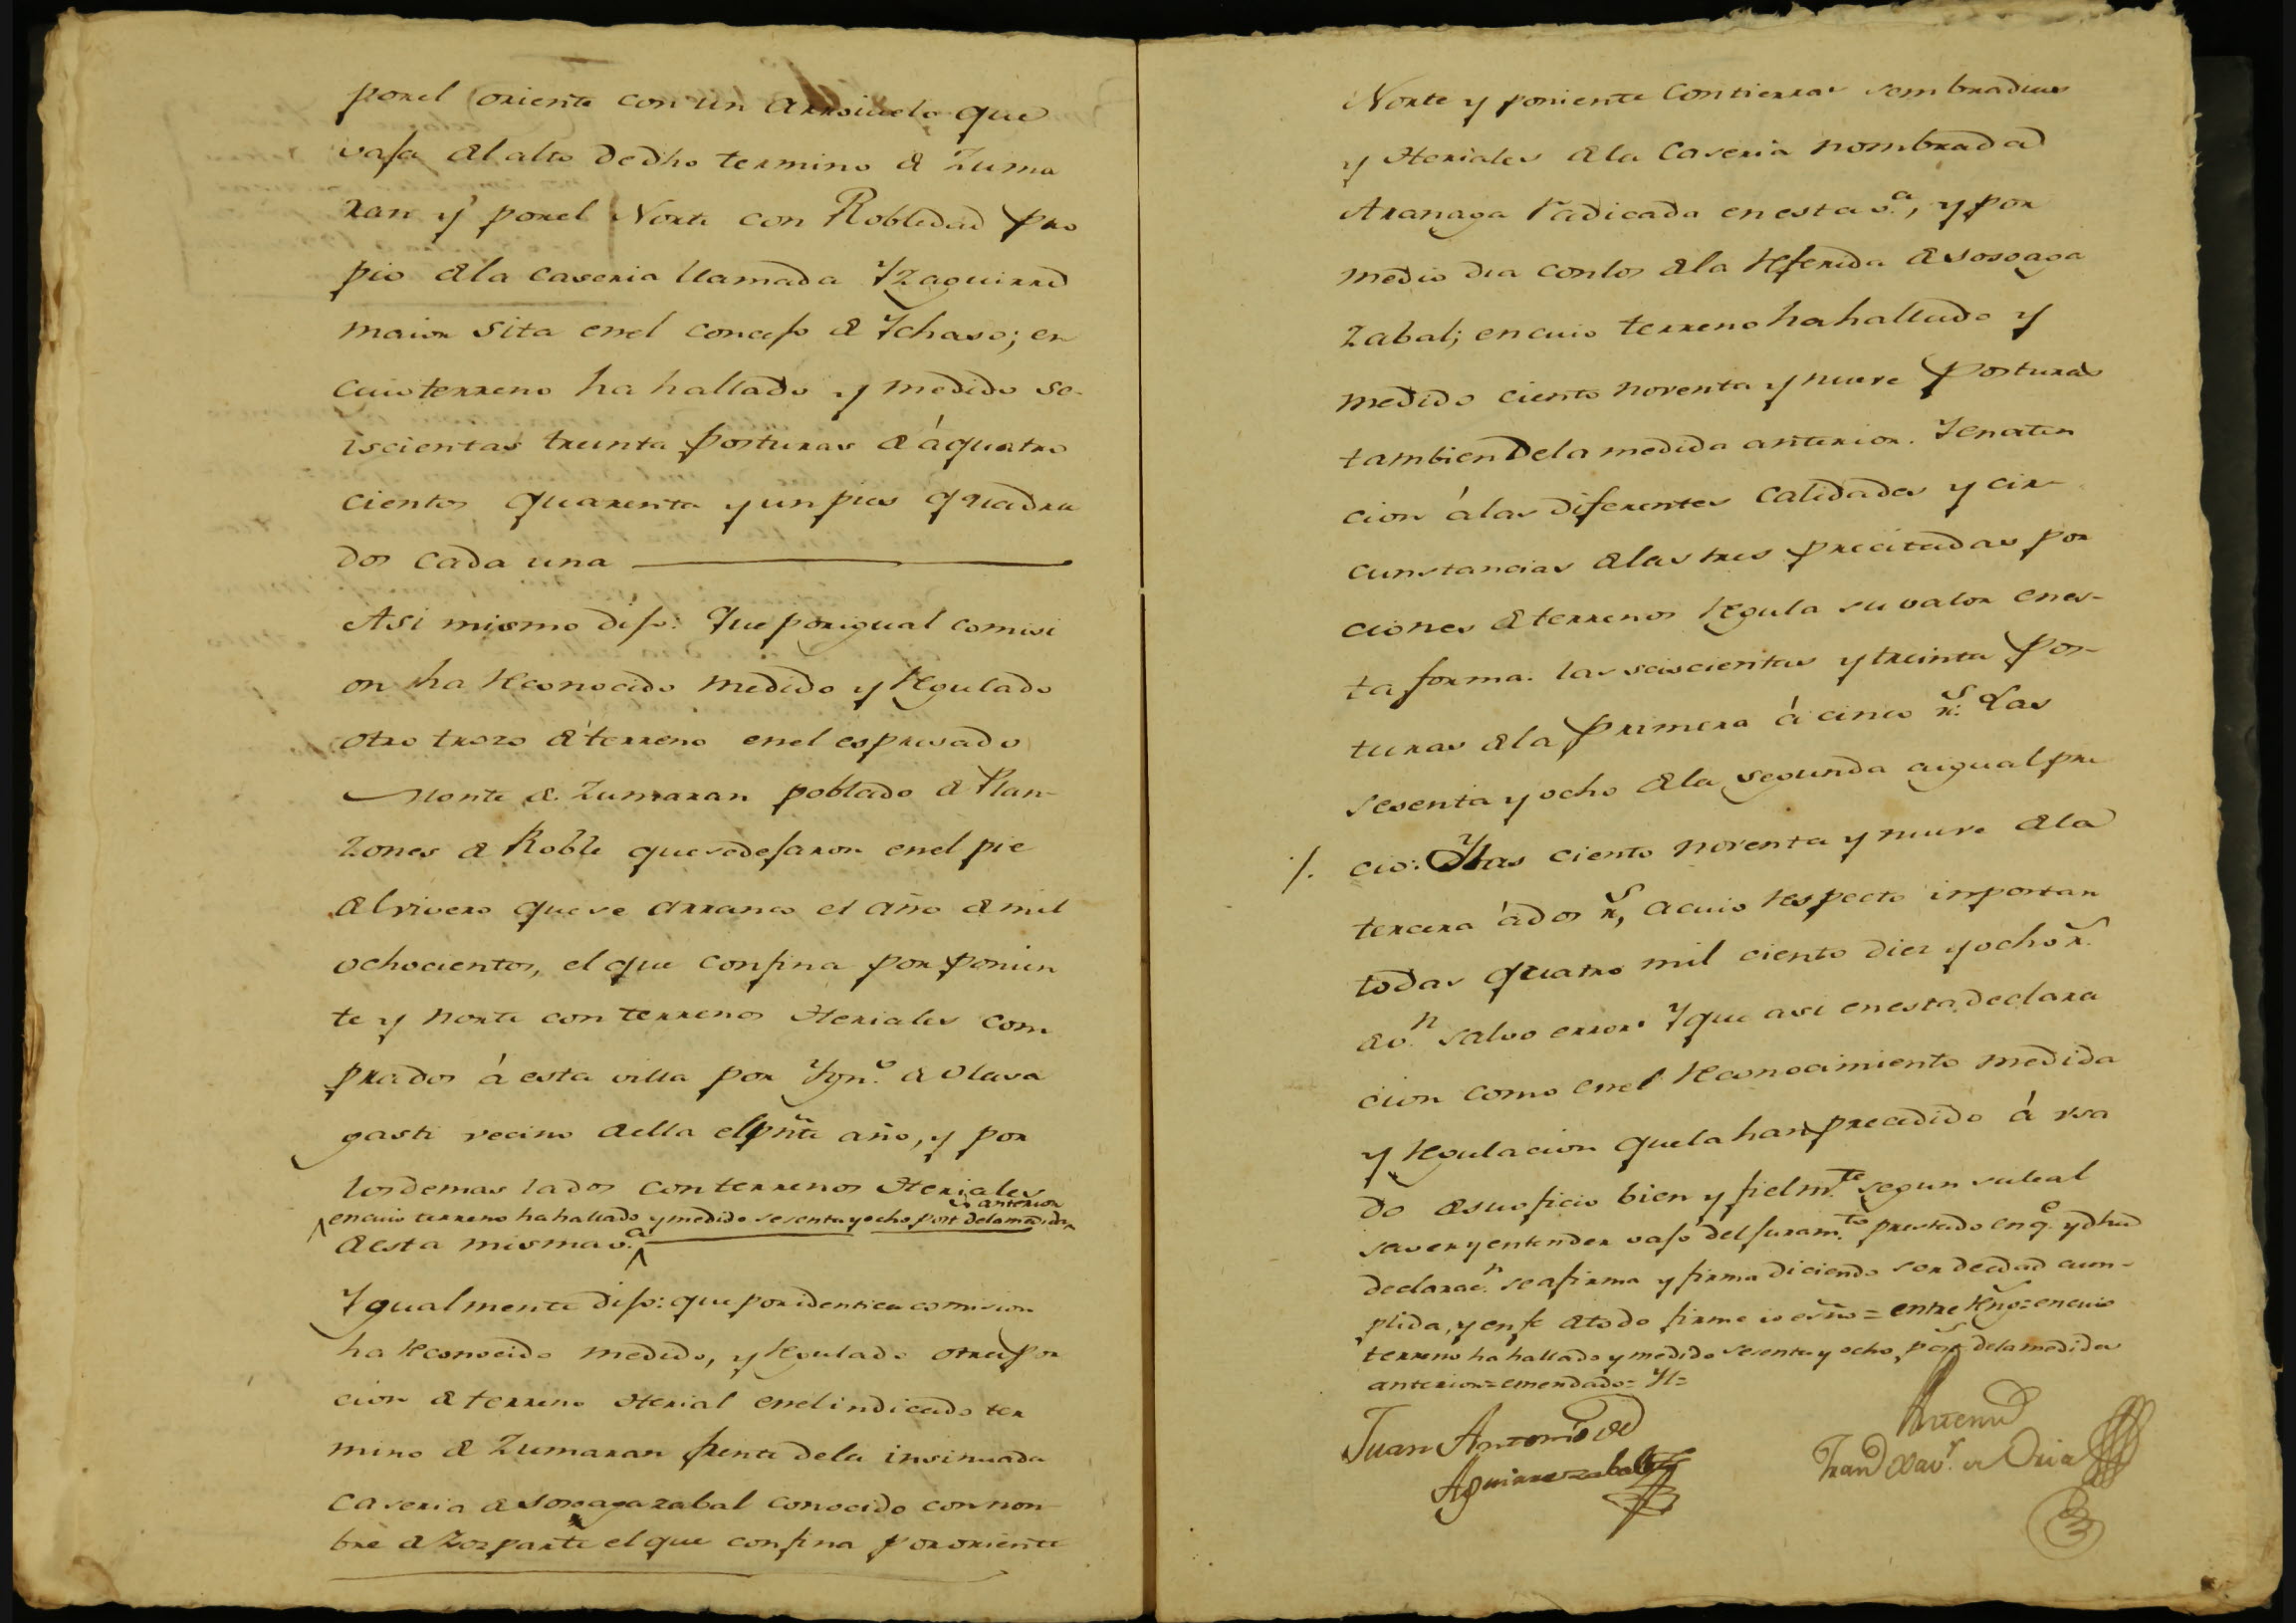 porel oriente con un arroiuelo que
vaja del alto dedho termino de Zuma
ran y porel Norte con Robledad pro
pio dela caseria llamada Yzaguirre
maior sita enel concejo de Ychaso; en
cuio terreno ha hallado y medido se-
iscientas treinta posturas de á quatro
cientos quarenta y un pies quadra
dos cada una
Asi mismo dijo: Que por igual comisi
on ha reconocido medido y regulado
otro trozo de terreno enel espresado
Monte de Zumaran poblado de Plan-
zones de Roble que se dejaron enel pie
del vivero que se arranco el año de mil
ochocientos, el que confina por ponien
te y norte con terrenos steriales com
prados á esta villa por Ygn.º de Olasa
gasti vecino de ella el pñte año, y por
los demas lados con terrenos steriales
anterior
en cuio terreno ha hallado y medido sesenta y ocho post.s dela medida
de esta misma v.a
Ygualmente dijo: que por identica comision
ha reconocido medido, y regulado otra por
cion de terreno sterial enel indicado ter
mino de Zumaran frente dela insinuada
caseria de Sosoagazabal conocido con non
bre de Zozparte el que confina por oriente
Norte y poniente con tierras sembradias
y steriales dela caseria nombrada
Aranaga radicada en esta v.a, y por
medio dia con los dela referida de Sosoaga
zabal; en cuio terreno ha hallado y
medido ciento noventa y nueve posturas
tambien dela medida anterior. Y en aten
cion á las diferentes calidades y cir-
cunstancias de las tres precitadas por
ciones de terrenos regula su valor en es-
ta forma: las seiscientas y treinta pos-
turas dela primera á cinco r.s Las
sesenta y ocho dela segunda a igual pre
/. cio: Ylas ciento noventa y nueve dela
tercera á dos r.s, a cuio respecto inportan
todas quatro mil ciento diez y ocho r.s
de v.n salvo error: Y que asi en esta declara
cion como enel reconocimiento medida
y regulacion que la han precedido á usa
do de su oficio bien y fielm.te segun su leal
saver y entender vajo del juram.to prestado en q.e y dha
declarac.n se afirma y firma diciendo ser de edad cum-
plida, y en fe de todo firme io el es.no = entre reng.s = en cuio
terreno ha hallado y medido sesenta y ocho pos.s dela medida
anterior = emendado = Yl =
Juan Antonio de
Aguirrezabala
Antemi
Fran.co Xav.r de Oria